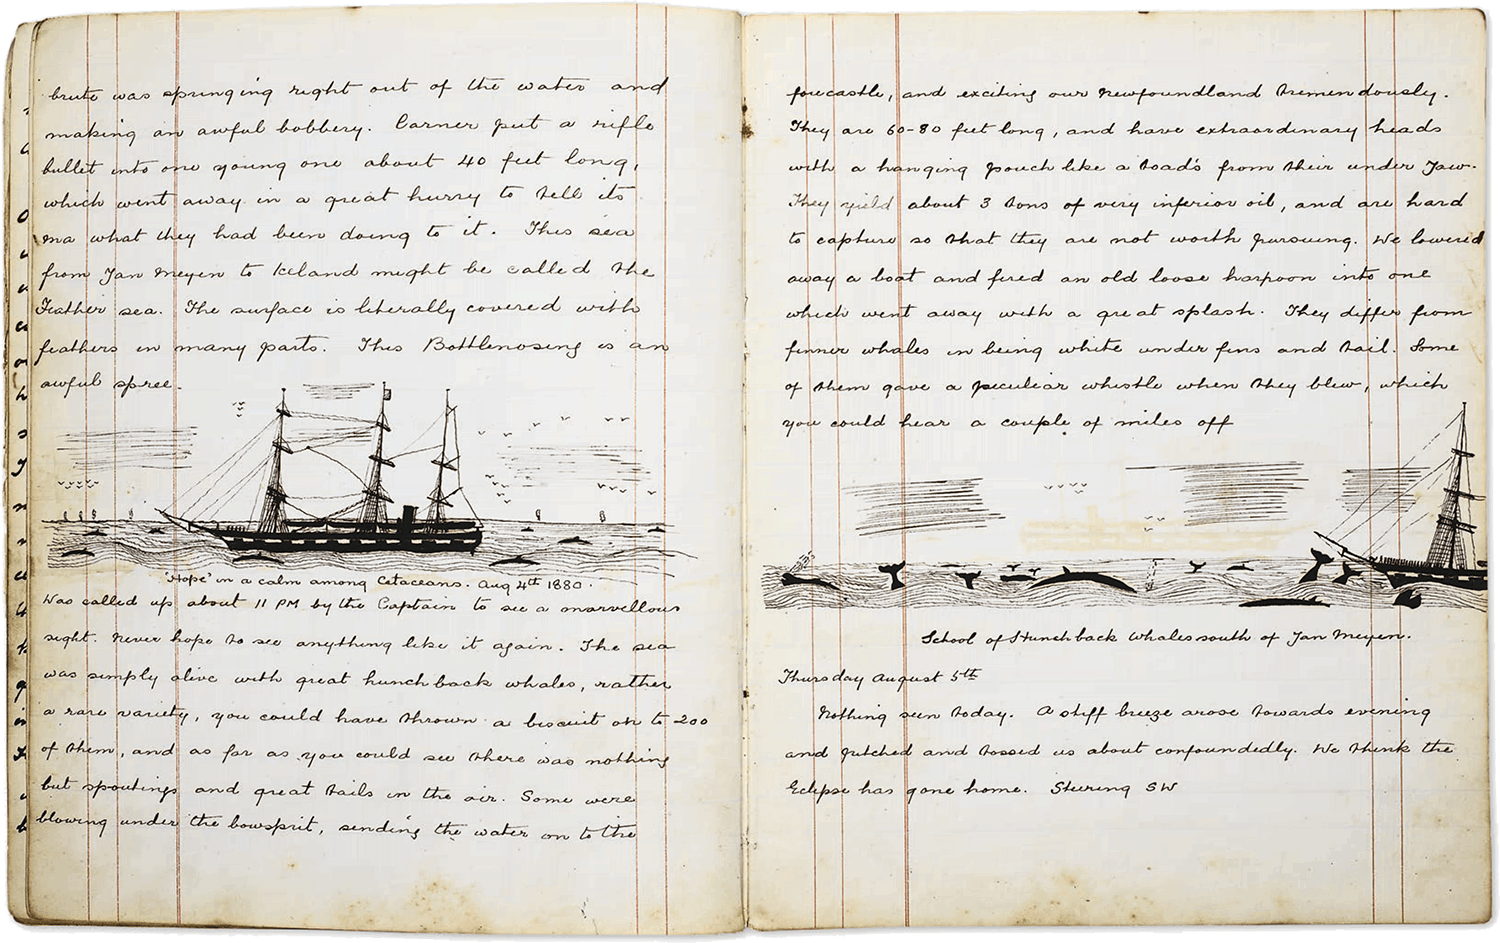 brute was springing right out of the water and
making an awful bobbery. Carner put a rifle
bullet into one young one about 40 feet long,
which went away in a great hurry to tell its
ma what they had been doing to it. This sea
from Jan Meyen to Iceland might be called the
Feather sea. The surface is literally covered with
feathers in many parts. This Bottlenosing is an
awful spree.
'Hope' in a calm among Cetaceans. Aug 4th 1880.
Was called up about 11 PM by the Captain to see a marvellous
sight. Never hope to see anything like it again. The sea
was simply alive with great hunchback whales, rather
a rare variety, you could have thrown a biscuit on to 200
of them, and as far as you could see there was nothing
but spoutings and great tails in the air. Some were
blowing under the bowsprit, sending the water on to the
forecastle, and exciting our Newfoundland tremendously.
They are 60-80 feet long, and have extraordinary heads
with a hanging pouch like a toad's from their under Jaw.
They yield about 3 tons of very inferior oil, and are hard
to capture so that they are not worth pursuing. We lowered
away a boat and fired an old loose harpoon into one
which went away with a great splash. They differ from
finner whales in being white under fins and tail. Some
of them gave a peculiar whistle when they blew, which
you could hear a couple of miles off
School of Hunchback Whales south of Jan Meyen.
Thursday August 5th
Nothing seen today. A stiff breeze arose towards evening
and pitched and tossed us about confoundedly. We think the
Eclipse has gone home. Steering SW